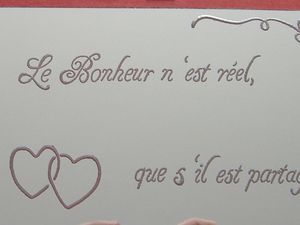 Le Bonheur n'est réel,
que s'il est partag